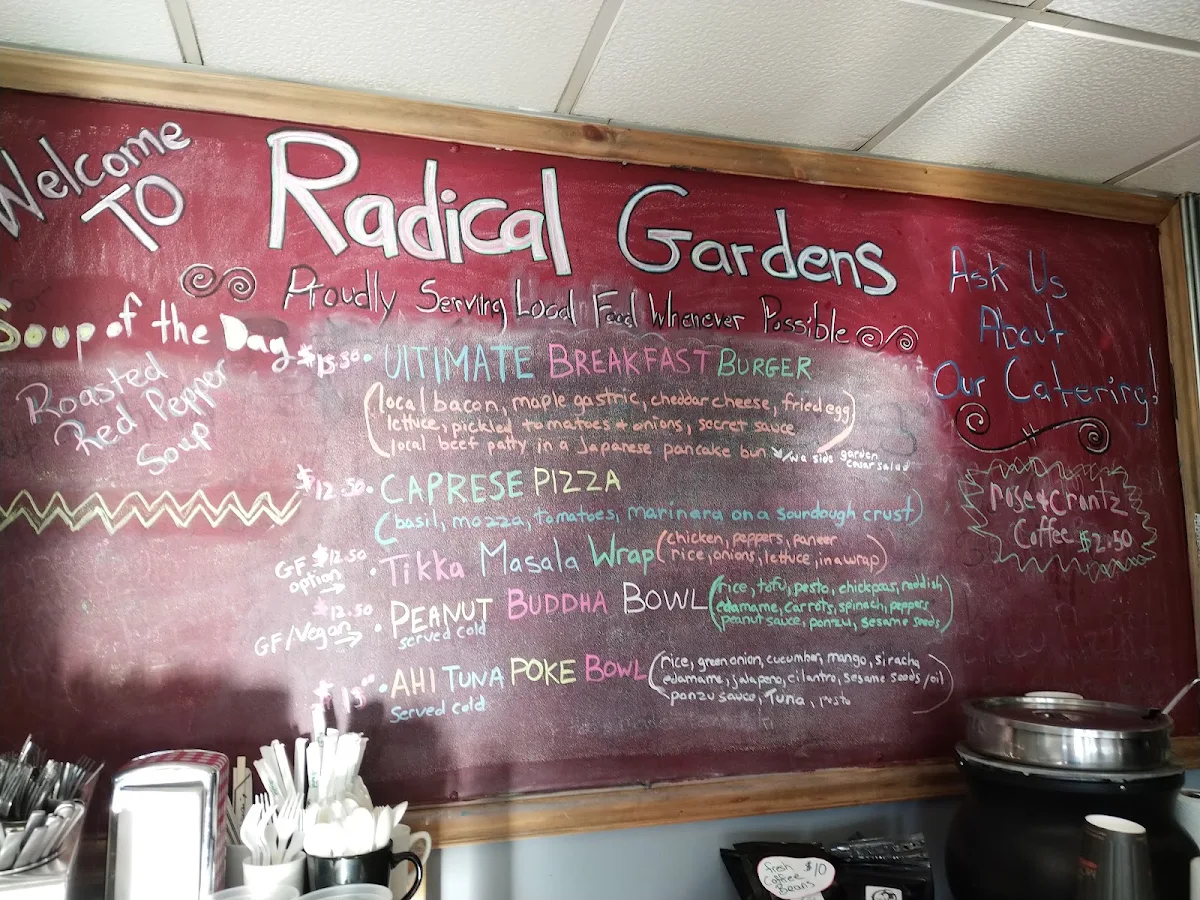 Welcome
TO
Radical Gardens
Proudly Serving Local Food Whenever Possible
Soup of the Day
Roasted
Red Pepper
Soup
$15.50 • ULTIMATE BREAKFAST BURGER
(local bacon, maple gastric, cheddar cheese, fried egg
lettuce, pickled tomatoes + onions, socret sauce
local beef patty in a Japanese pancake bun) w/ a side garden
or caesar salad
$12.50 • CAPRESE PIZZA
(basil, mozza, tomatoes, marinara on a sourdough crust)
GF $12.50
option →
• Tikka Masala Wrap (chicken, peppers, paneer
rice, onions, lettuce, in a wrap)
$12.50
GF/Vegan →
• PEANUT BUDDHA BOWL
served cold
(rice, tofu, pesto, chickpeas, raddish
edamame, carrots, spinach, peppers
peanut sauce, ponzu, sesame seeds)
$15 • AHI TUNA POKE BOWL
served cold
(rice, green onion, cucumber, mango, siracha
edamame, jalapeno, cilantro, sesame seeds/oil
ponzu sauce, Tuna, pesto
Ask Us
About
Our Catering!
Rose + Crantz
Coffee $2.50
fresh $10
Coffee
Beans